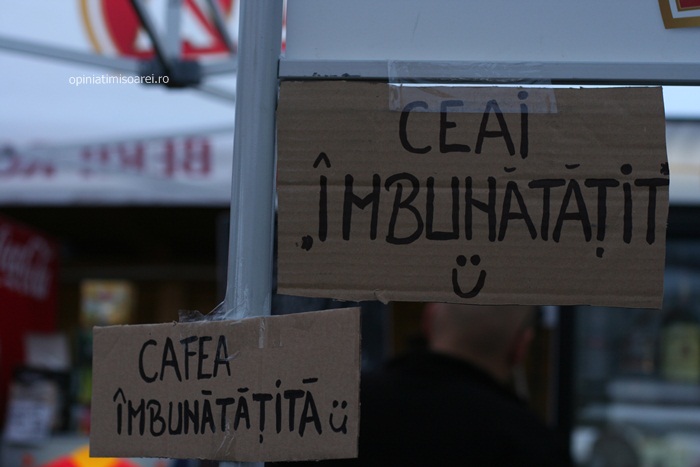 opiniatimisoarei.ro
CEAI
„ÎMBUNĂTĂȚIT”
Ü
CAFEA
ÎMBUNĂTĂȚITĂ Ü